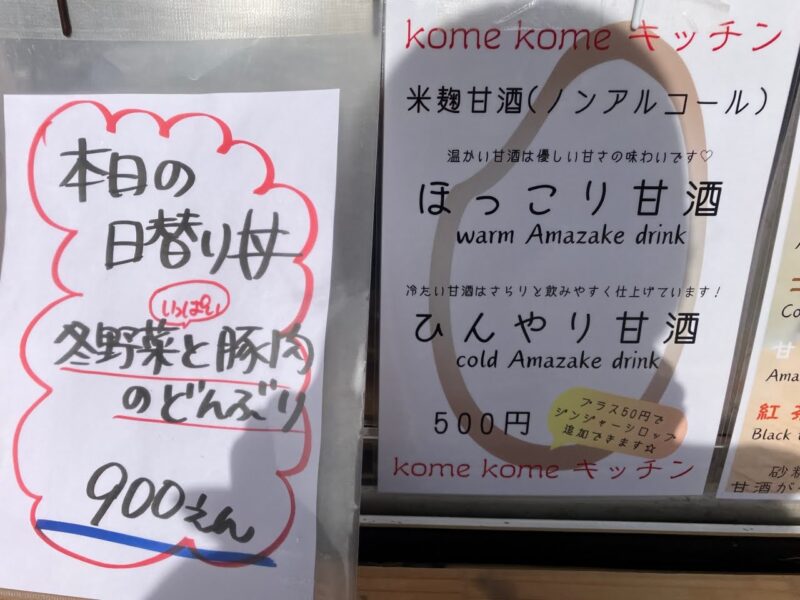 本日の
日替り丼
いっぱい
冬野菜と豚肉
のどんぶり
900えん
kome kome キッチン
米麹甘酒(ノンアルコール)
温かい甘酒は優しい甘さの味わいです♡
ほっこり甘酒
warm Amazake drink
冷たい甘酒はさらりと飲みやすく仕上げています!
ひんやり甘酒
cold Amazake drink
500円
プラス50円で
ジンジャーシロップ
追加できます☆
kome kome キッチン
Co
甘
Ama
紅茶
Black
砂糖
甘酒が